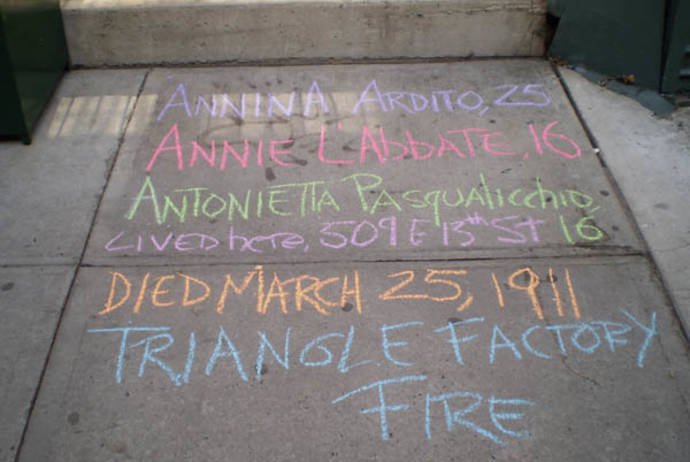 ANNINA ARDITO, 25
ANNIE L'AbbATE, 16
ANTONIETTA PASquAlicchio, 16
LIVED here, 509 E 13th ST
DIED MARCH 25, 1911
TRIANGLE FACTORY
FIRE